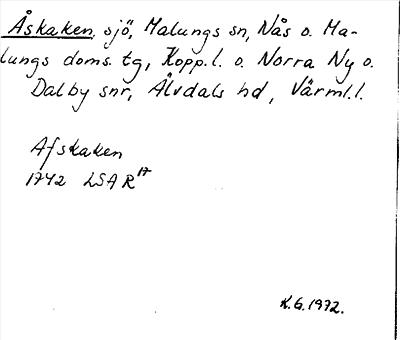 Åskaken, sjö, Malungs sn, Nås o. Ma-
lungs doms. tg, Kopp. l. o. Norra Ny o.
Dalby snr, Älvdals hd, Värml. l.
Afskaken
1742 LSA R¹⁷
K.G. 1972.